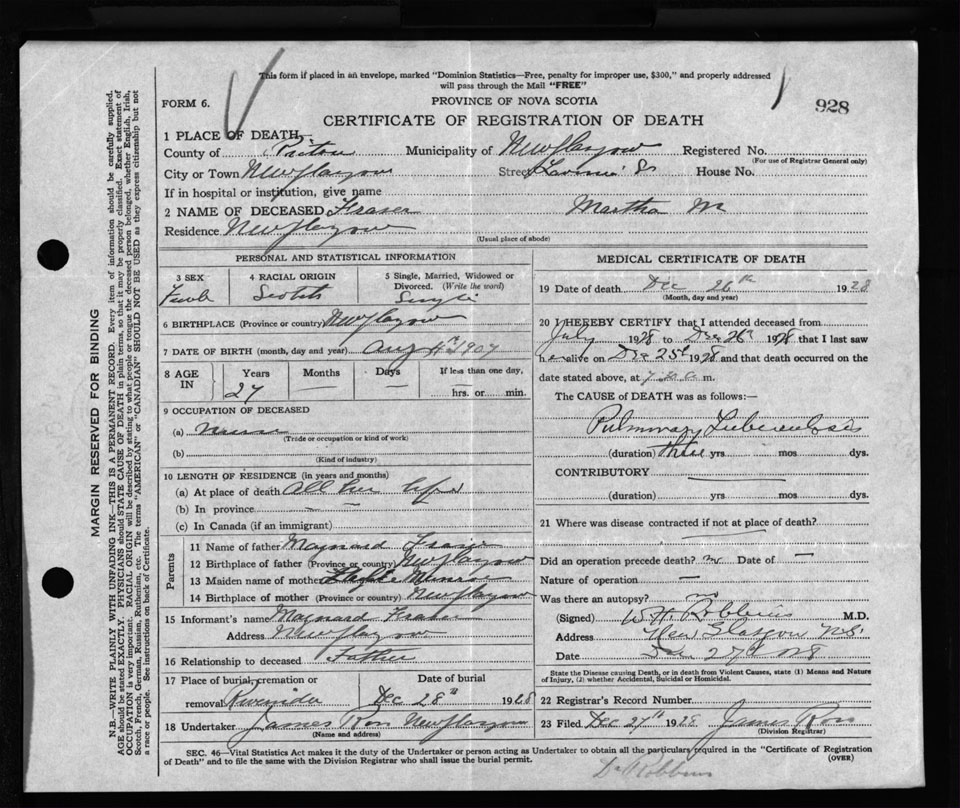 This form if placed in an envelope, marked "Dominion Statistics—Free, penalty for improper use, $300," and properly addressed
will pass through the Mail "FREE"
FORM 6.
PROVINCE OF NOVA SCOTIA
928
CERTIFICATE OF REGISTRATION OF DEATH
1 PLACE OF DEATH—
County of Pictou Municipality of New Glasgow Registered No.
(For use of Registrar General only)
City or Town New Glasgow Street St House No.
If in hospital or institution, give name
2 NAME OF DECEASED Fraser Martha M
Residence New Glasgow
(Usual place of abode)
PERSONAL AND STATISTICAL INFORMATION
3 SEX 4 RACIAL ORIGIN 5 Single, Married, Widowed or
Divorced. (Write the word)
Female Scotch Single
6 BIRTHPLACE (Province or country) New Glasgow
7 DATE OF BIRTH (month, day and year) Aug 1907
8 AGE IN Years Months Days If less than one day,
27 — — hrs. or min.
9 OCCUPATION OF DECEASED
(a) Nurse
(Trade or occupation or kind of work)
(b)
(Kind of industry)
10 LENGTH OF RESIDENCE (in years and months)
(a) At place of death All her life
(b) In province — —
(c) In Canada (if an immigrant)
Parents
11 Name of father Maynard Fraser
12 Birthplace of father (Province or country) New Glasgow
13 Maiden name of mother Munro
14 Birthplace of mother (Province or country) New Glasgow
15 Informant's name Maynard Fraser
Address New Glasgow
16 Relationship to deceased Father
17 Place of burial, cremation or Date of burial
removal Riverside Dec 28th 1928
18 Undertaker James Ross New Glasgow
(Name and address)
MEDICAL CERTIFICATE OF DEATH
19 Date of death Dec 26th 1928
(Month, day and year)
20 I HEREBY CERTIFY that I attended deceased from
July 1928 to Dec 26th 1928 that I last saw
h er alive on Dec 25th 1928 and that death occurred on the
date stated above, at 7 a m.
The CAUSE of DEATH was as follows:—
Pulmonary Tuberculosis
(duration) three yrs mos dys.
CONTRIBUTORY
(duration) yrs mos dys.
21 Where was disease contracted if not at place of death?
Did an operation precede death? no Date of —
Nature of operation —
Was there an autopsy? no
(Signed) W.H. Robbins M.D.
Address New Glasgow N.S.
Date Dec 27th 1928
State the Disease causing Death, or in death from Violent Causes, state (1) Means and Nature
of Injury, (2) whether Accidental, Suicidal or Homicidal.
22 Registrar's Record Number
23 Filed Dec 27th 1928 James Ross
(Division Registrar)
SEC. 46—Vital Statistics Act makes it the duty of the Undertaker or person acting as Undertaker to obtain all the particulars required in the "Certificate of Registration
of Death" and to file the same with the Division Registrar who shall issue the burial permit.
(OVER)
Dr Robbins
MARGIN RESERVED FOR BINDING
N.B.—WRITE PLAINLY WITH UNFADING INK—THIS IS A PERMANENT RECORD. Every item of information should be carefully supplied.
AGE should be stated EXACTLY. PHYSICIANS should STATE CAUSE OF DEATH in plain terms, so that it may be properly classified. Exact statement of
OCCUPATION is very important. RACIAL ORIGIN will be described by stating to what people or tongue the deceased person belonged, whether English, Irish,
Scotch, French, German, Russian, Ruthenian, etc. The terms "AMERICAN" or "CANADIAN" SHOULD NOT BE USED as they express citizenship but not
a race or people. See instructions on back of Certificate.